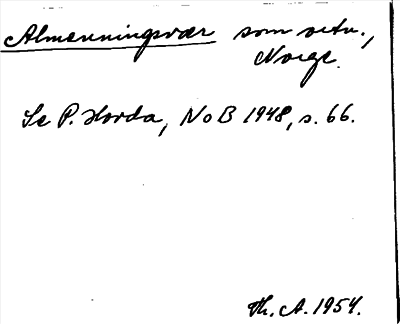 Almenningsvær som ortn.,
Norge.
Se P. Hovda, NoB 1948, s. 66.
Th. A. 1954.